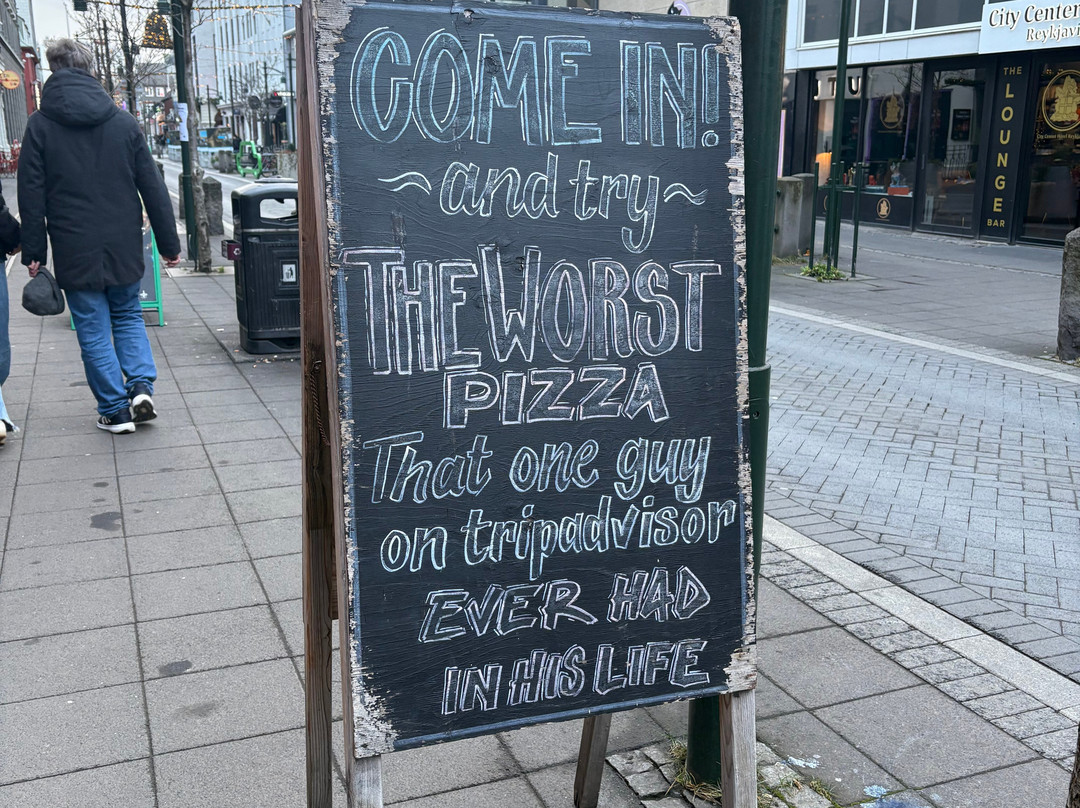 COME IN!
~and try~
THE WORST
PIZZA
That one guy
on tripadvisor
EVER HAD
IN HIS LIFE
City Center
Reykjavi
THE
LOUNGE
BAR